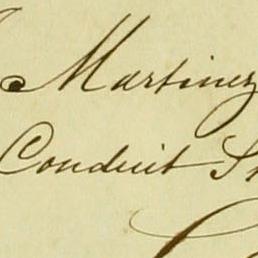 Martinez
Conduit St